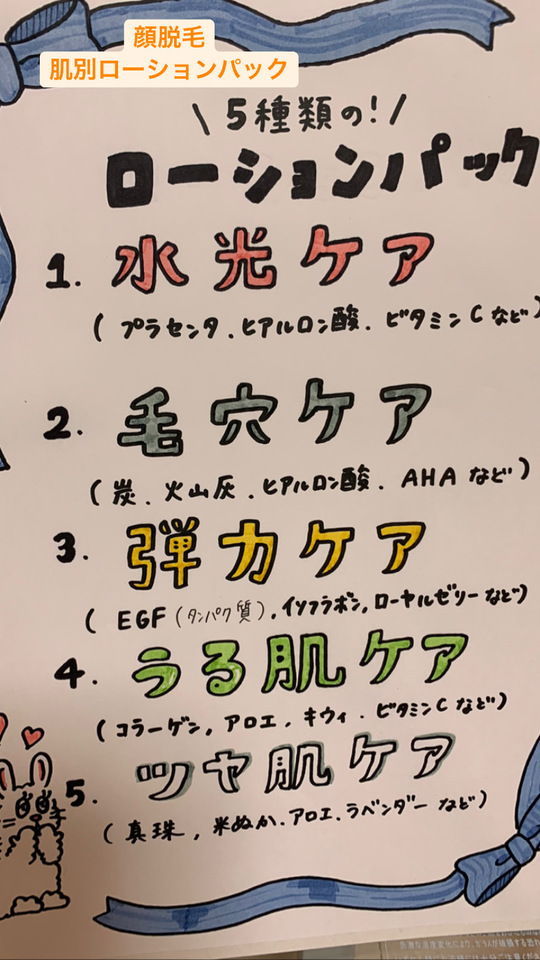 顔脱毛
肌別ローションパック
\ 5種類の! /
ローションパック
1. 水光ケア
( プラセンタ . ヒアルロン酸 . ビタミンC など )
2. 毛穴ケア
( 炭 . 火山灰 . ヒアルロン酸 . AHA など )
3. 弾力ケア
( EGF (タンパク質) , イソフラボン, ローヤルゼリー など )
4. うる肌ケア
( コラーゲン, アロエ, キウィ . ビタミンC など )
5. ツヤ肌ケア
( 真珠 , 米ぬか . アロエ . ラベンダー など )